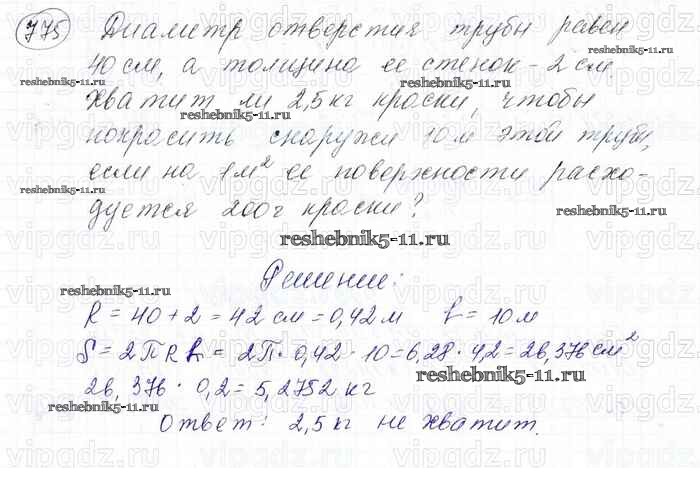 775 Диаметр отверстия трубы равен
40 см, а толщина ее стенок - 2 см.
Хватит ли 2,5 кг краски, чтобы
покрасить снаружи 10 м этой трубы,
если на 1 м² ее поверхности расхо-
дуется 200 г краски?
Решение:
R = 40 + 2 = 42 см = 0,42 м L = 10 м
S = 2πRL = 2π · 0,42 · 10 = 6,28 · 4,2 = 26,376 см²
26,376 · 0,2 = 5,2752 кг
Ответ: 2,5 кг не хватит.
reshebnik5-11.ru
vipgdz.ru